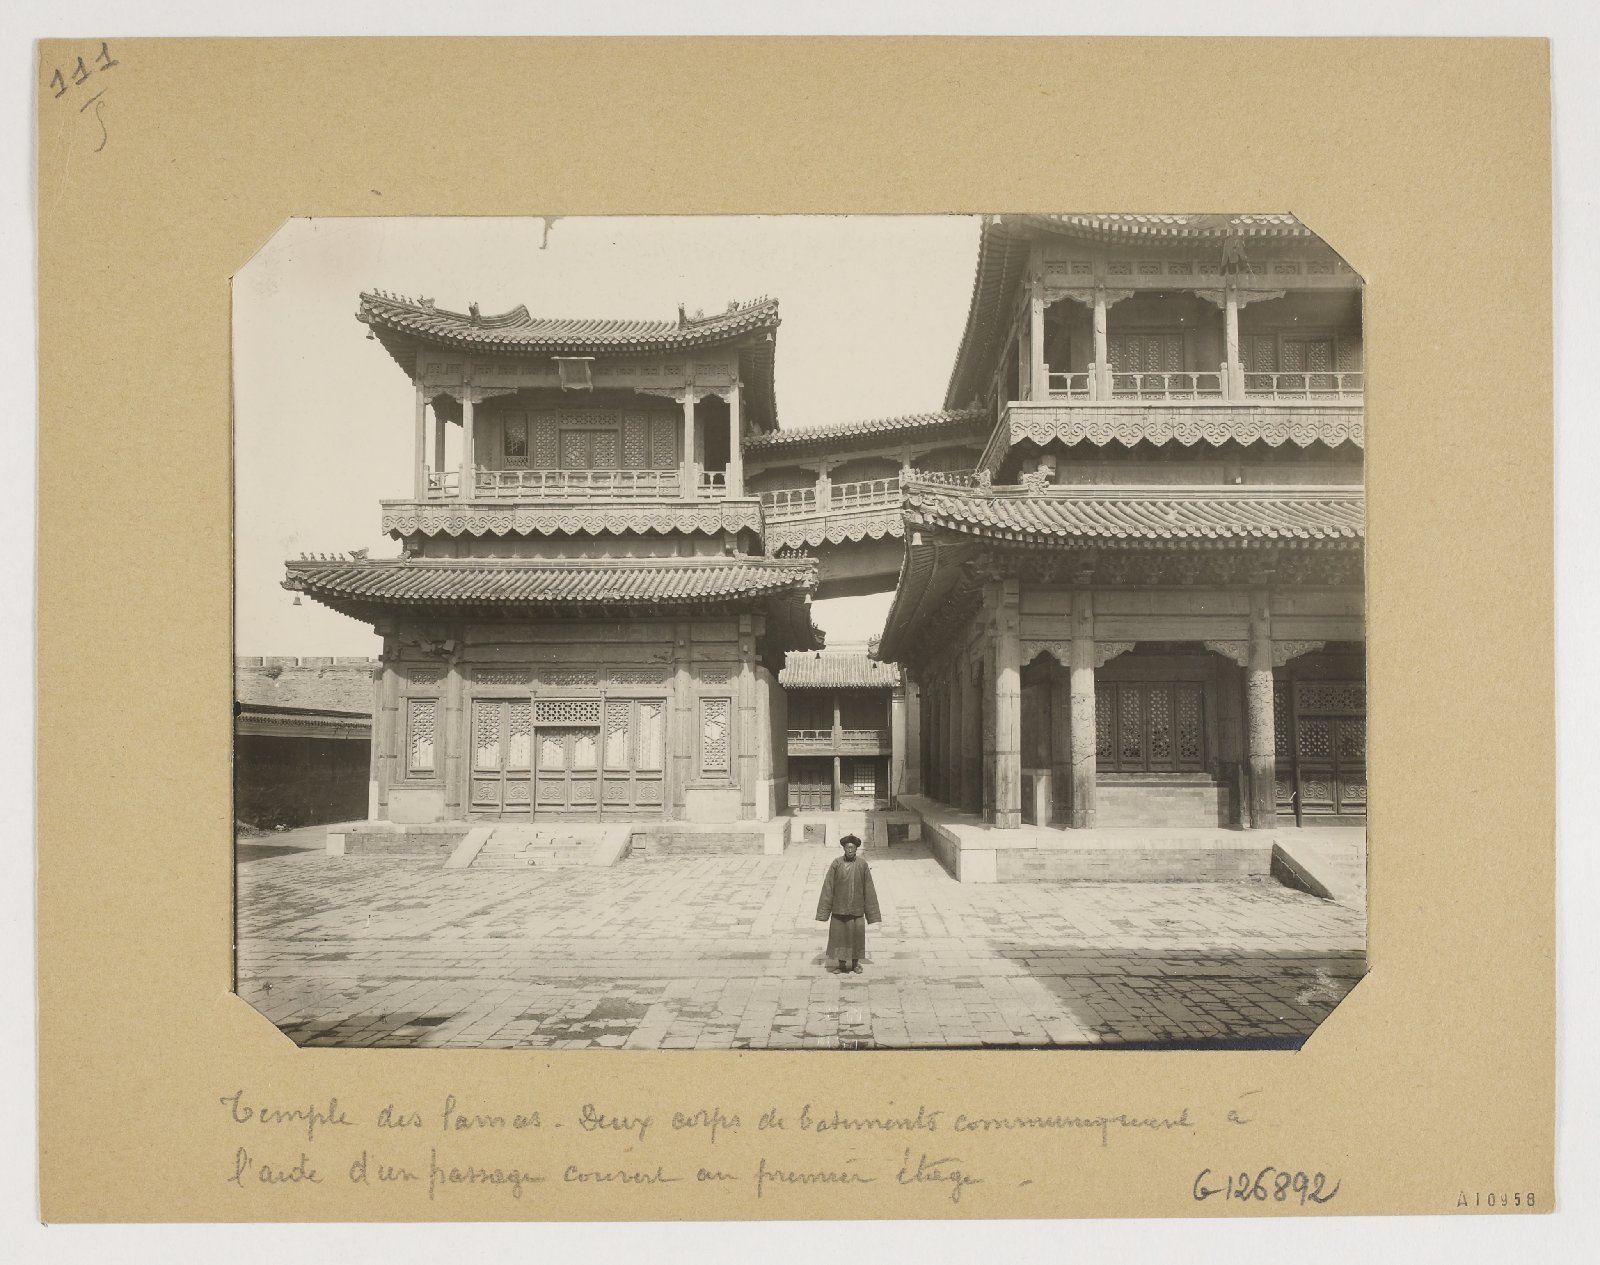 111
5
Temple des lamas. Deux corps de batiments communiquent à
l'aide d'un passage couvert au premier étage.
G126892
A10958